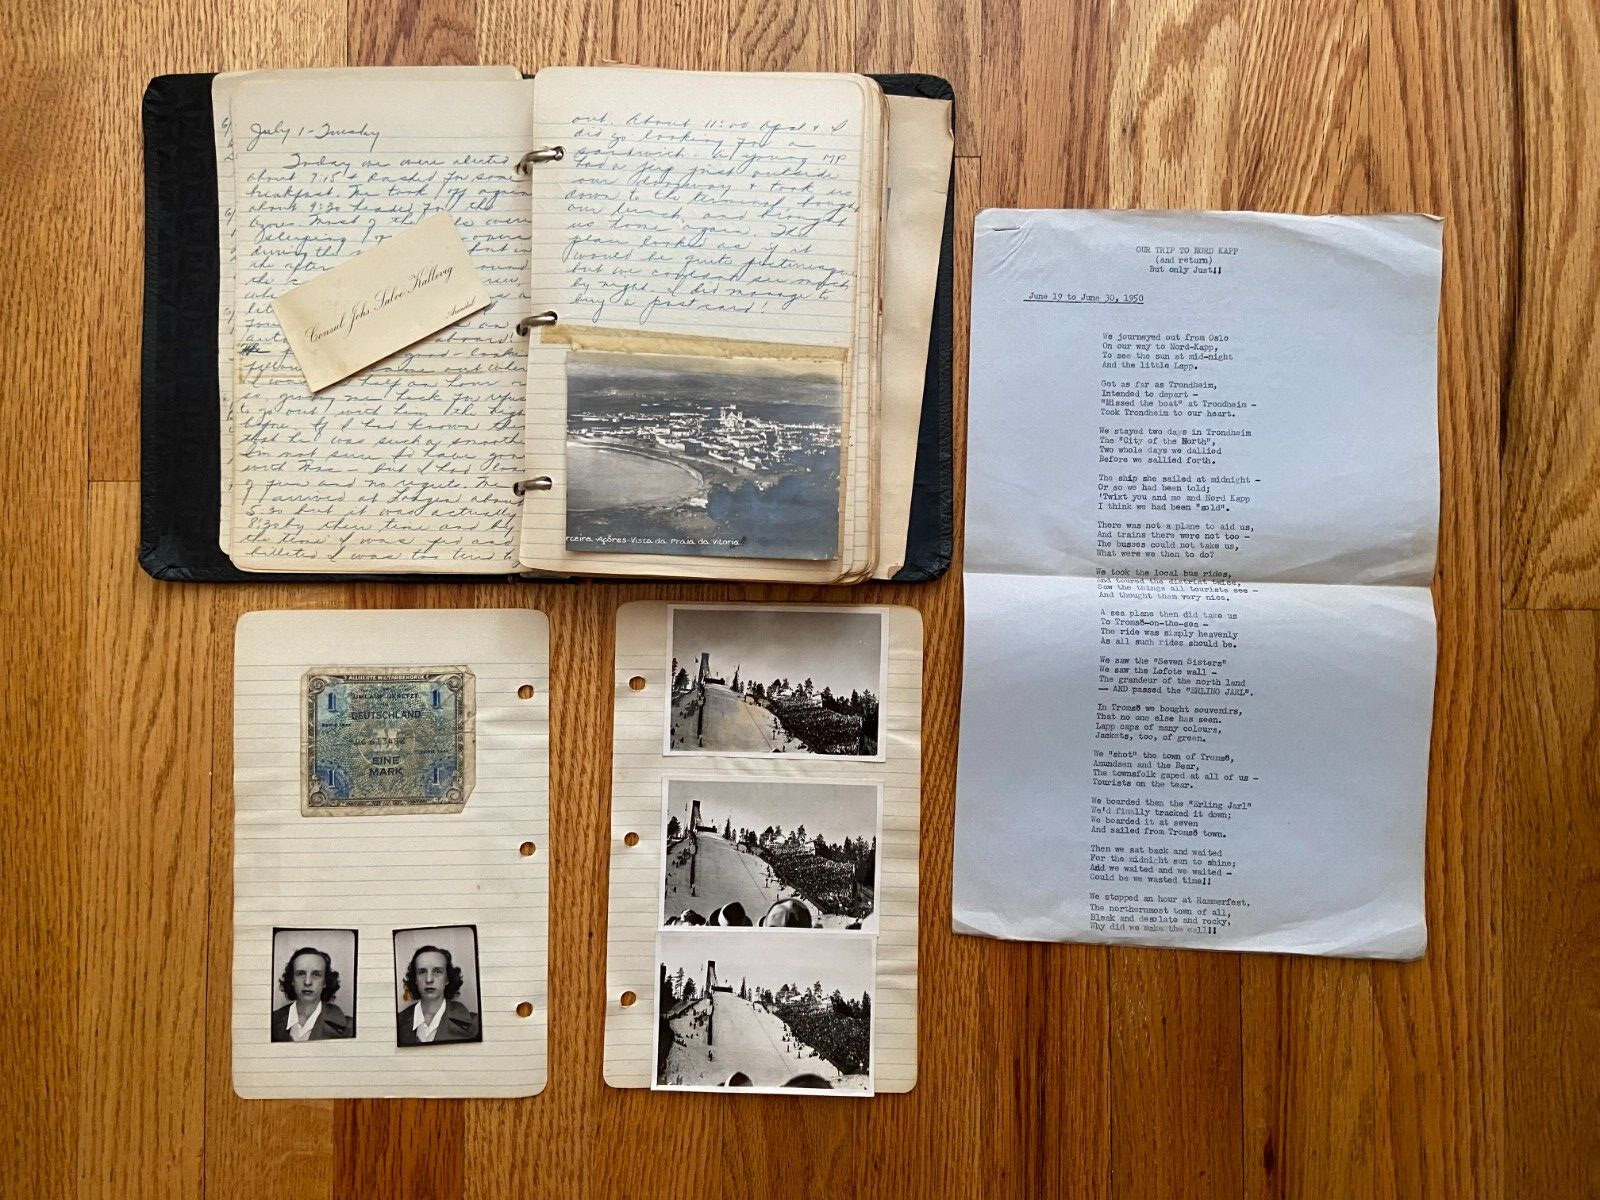 July 1 - Tuesday
Today we were alerted
about 7:15 & dashed for some
breakfast. We took off again
about 9:30 headed for the
Azores. Most of the
sleeping
during the
the after
the
good-looking
came out when
I was half an hour
so, giving me heck for
to go out with him the night
before. If I had known
that he was such a smoothie
I'm not sure I'd have gone
with Mac - but I had loads
of fun and no regrets. We
arrived at Lagens about
5:30 but it was actually
8:30 by their time and by
the time I was fed and
billeted I was too tired to
Consul Johs. Salve Kallevig
Arendal
out. About 11:00 Opal & I
did go looking for a
sandwich. A young MP
had a jeep just outside
our doorway & took us
down to the terminal, bought
our lunch, and brought
us home again. The
place looked as if it
would be quite picturesque
but we couldn't see much
by night. I did manage to
buy a postcard!
rceira-Açôres-Vista da Praia da Vitoria.
ALLIIERTE MILITÄRBEHÖRDE
1 1
UMLAUF GESETZT
IN
DEUTSCHLAND
EINE
MARK
1 1
OUR TRIP TO NORD KAPP
(and return)
But only Just!!
June 19 to June 30, 1950
We journeyed out from Oslo
On our way to Nord-Kapp,
To see the sun at mid-night
And the little Lapp.
Got as far as Trondheim,
Intended to depart -
"Missed the boat" at Trondheim -
Took Trondheim to our heart.
We stayed two days in Trondheim
The "City of the North",
Two whole days we dallied
Before we sallied forth.
The ship she sailed at midnight -
Or so we had been told;
'Twixt you and me and Nord Kapp
I think we had been "sold".
There was not a plane to aid us,
And trains there were not too -
The busses could not take us,
What were we then to do?
We took the local bus rides,
And toured the district twice,
Saw the things all tourists see -
And thought them very nice.
A sea plane then did take us
To Tromsö-on-the-sea -
The ride was simply heavenly
As all such rides should be.
We saw the "Seven Sisters"
We saw the Lofote wall -
The grandeur of the north land
-- AND passed the "ERLING JARL".
In Tromsö we bought souvenirs,
That no one else has seen.
Lapp caps of many colours,
Jackets, too, of green.
We "shot" the town of Tromsö,
Amundsen and the Bear,
The townsfolk gaped at all of us -
Tourists on the tear.
We boarded then the "Erling Jarl"
We'd finally tracked it down;
We boarded it at seven
And sailed from Tromsö town.
Then we sat back and waited
For the midnight sun to shine;
And we waited and we waited -
Could be we wasted time!!
We stopped an hour at Hammerfest,
The northernmost town of all,
Bleak and desolate and rocky,
Why did we make the call!!